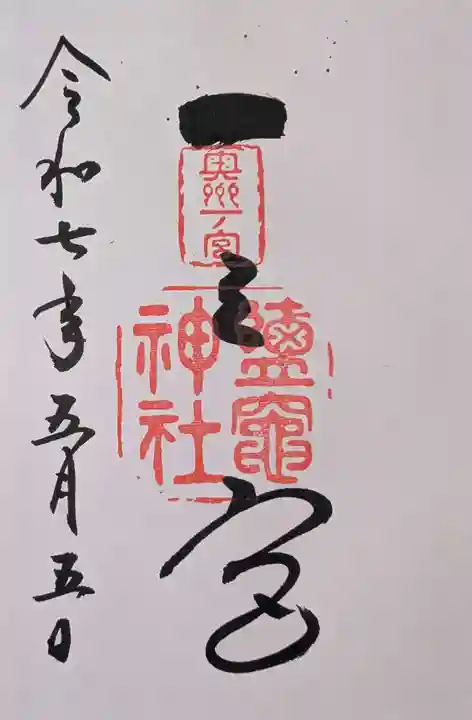 一之宮
奥州一ノ宮
鹽竈
神社
令和七年五月五日